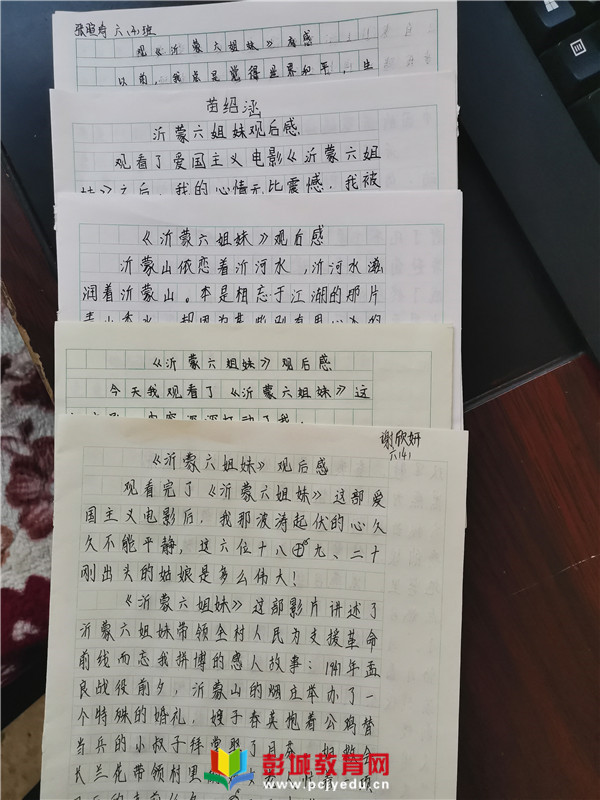 张 六(4)班
观《沂蒙六姐妹》有感
以前，我总是觉得世界和平，生
苗绍涵
沂蒙六姐妹观后感
观看了爱国主义电影《沂蒙六姐
妹》之后，我的心情无比震撼，我被
《沂蒙六姐妹》观后感
沂蒙山依恋着沂河水，沂河水滋
润着沂蒙山。本是相忘于江湖的那片
青山秀水，却因为某些别有用心的
《沂蒙六姐妹》观后感
今天我观看了《沂蒙六姐妹》这
内容深深打动了我
谢欣妍
六(4)
《沂蒙六姐妹》观后感
观看完了《沂蒙六姐妹》这部爱
国主义电影后，我那波涛起伏的心久
久不能平静，这六位十八九、二十
刚出头的姑娘是多么伟大！
《沂蒙六姐妹》这部影片讲述了
沂蒙六姐妹带领全村人民为支援革命
前线而忘我拼搏的感人故事：1947年孟
良战役前夕，沂蒙山的烟庄举办了一
个特殊的婚礼，嫂子春英抱着公鸡替
当兵的小叔子拜堂娶了月芬。
长兰花带领村里
彭城教育网
www.pcjyedu.com